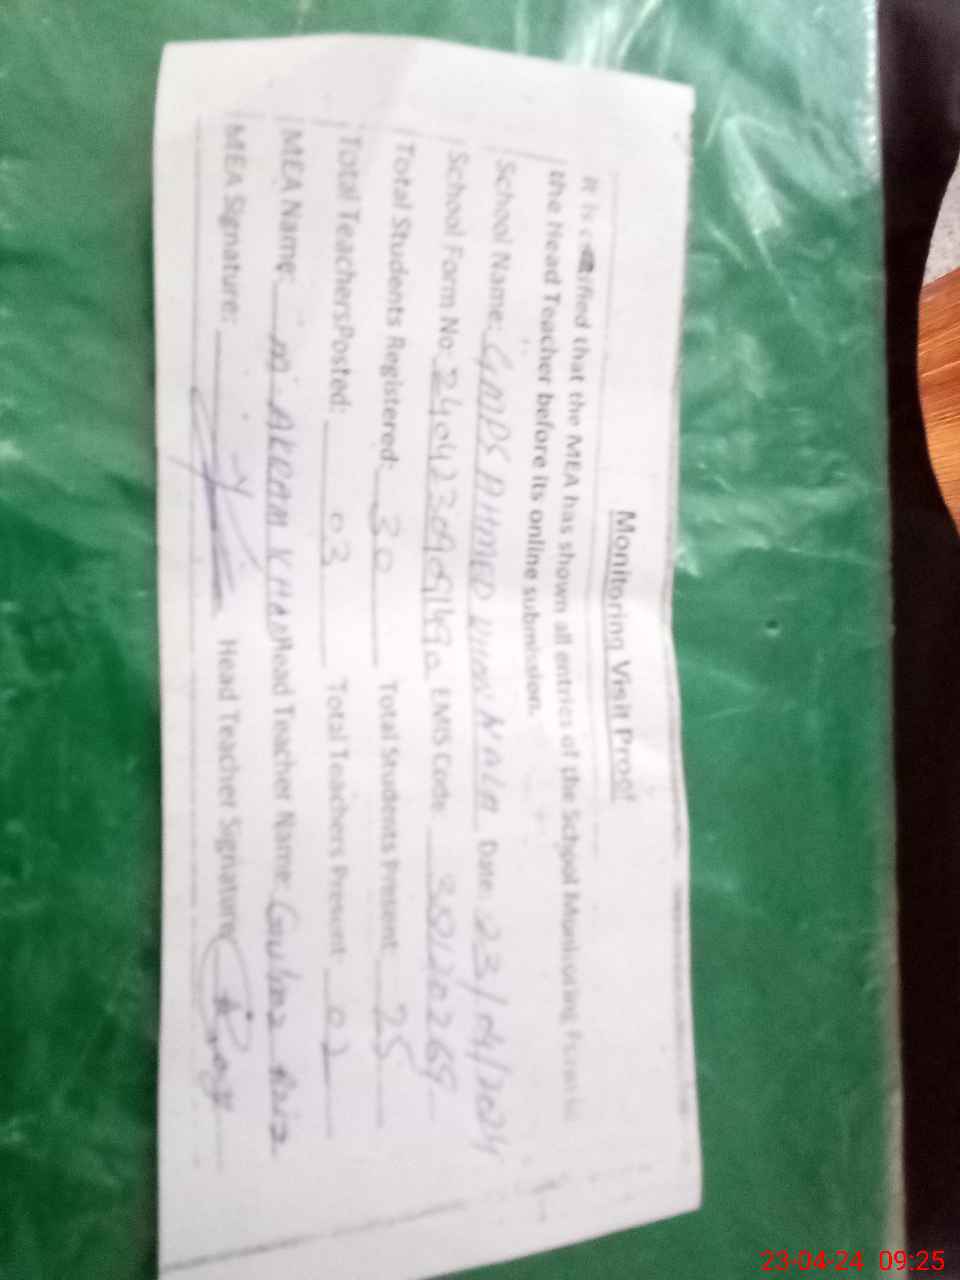 Monitoring Visit Proof
It is certified that the MEA has shown all entries of the School Monitoring Form to
the Head Teacher before its online submission.
School Name: GMPS AHMED NALA Date: 23/04/2024
School Form No EMIS Code:
Total Students Registered: 30 Total Students Present: 25
Total Teachers Posted: 03 Total Teachers Present 02
MEA Name: M. AKRAM KHAN Head Teacher Name:
MEA Signature: Head Teacher Signature
23-04-24 09:25